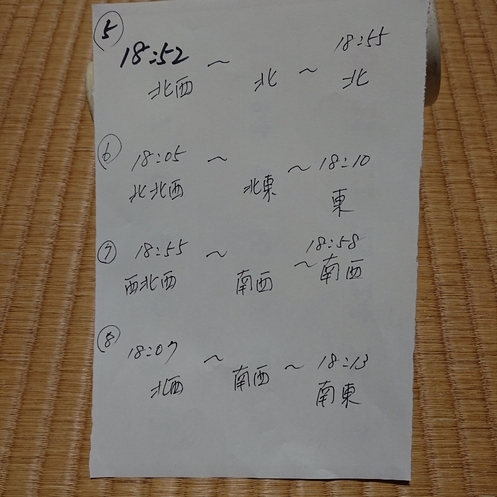 ⑤
18:52 ～ ～ 18:55
北西 北 北
⑥ 18:05 ～ ～ 18:10
北北西 北東 東
⑦ 18:55 ～ ～ 18:58
西北西 南西 南西
⑧ 18:07 ～ ～ 18:13
北西 南西 南東